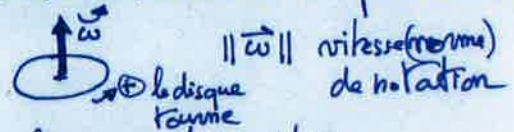 ω⃗
||ω⃗|| vitesse (norme)
de rotation
⊕ le disque
tourne